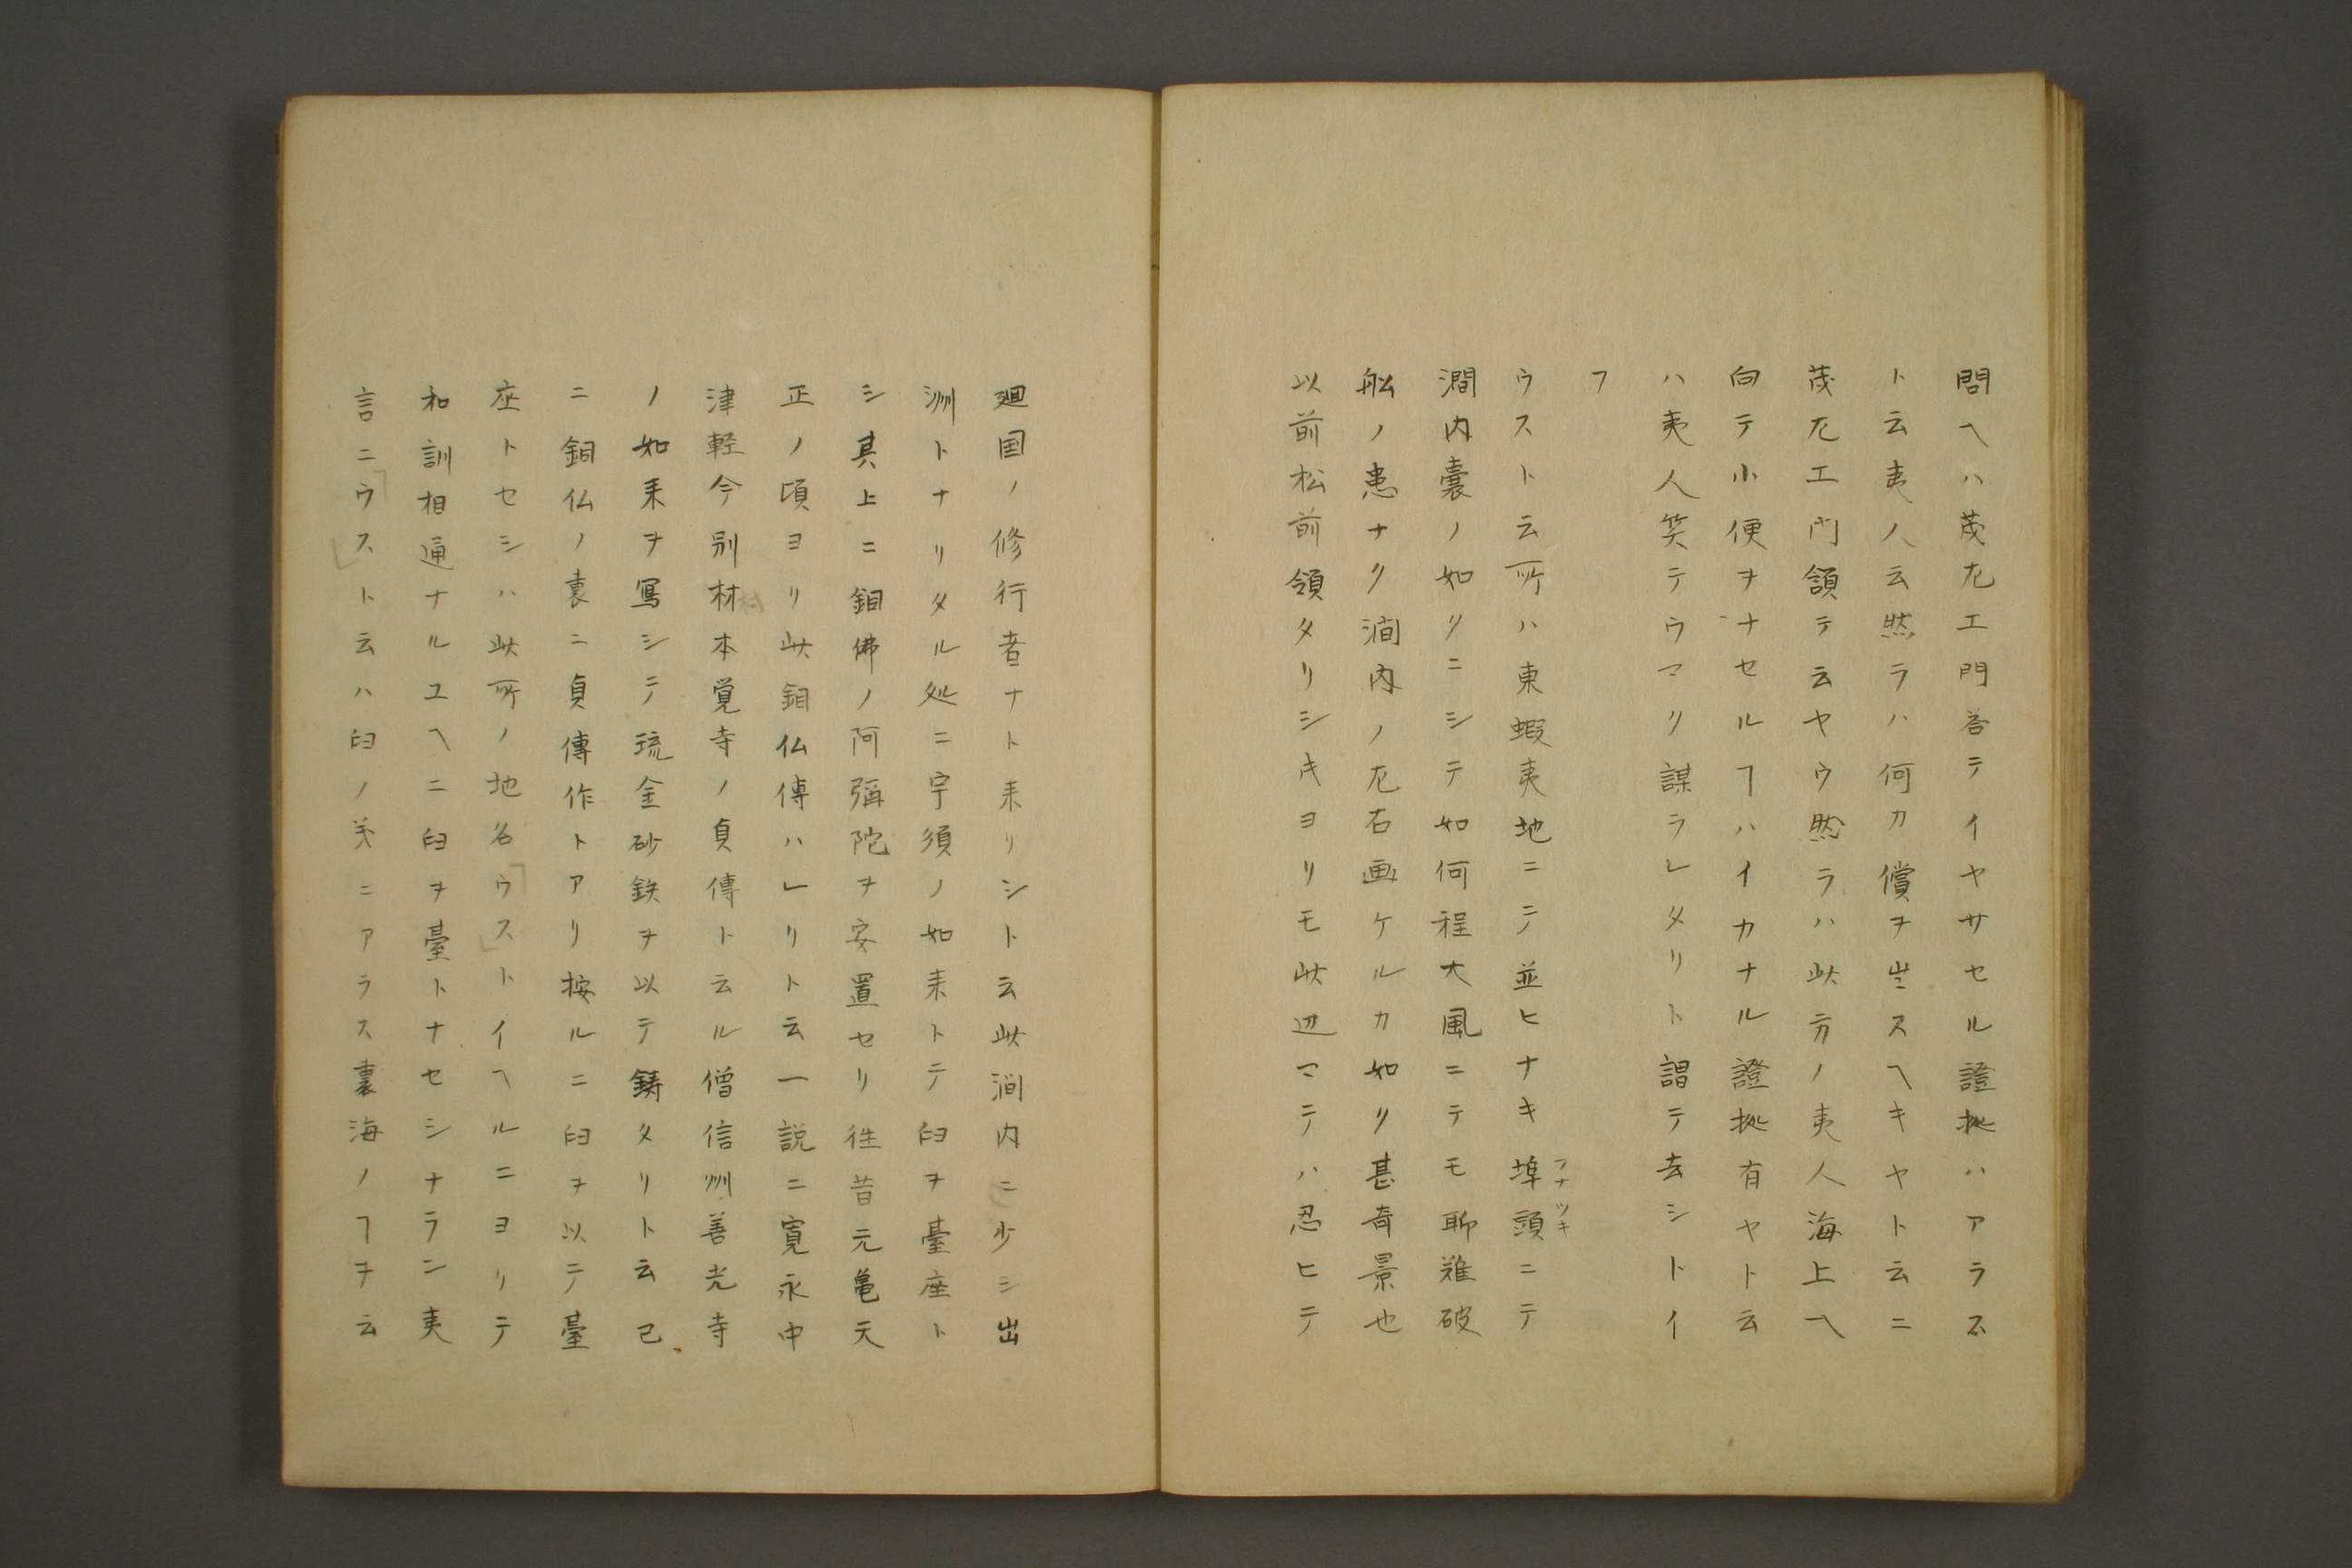 問ヘハ茂左エ門答テイヤサセル證拠ハアラス
ト云夷人云然ラハ何カ償ヲ出スヘキヤト云ニ
茂左エ門頷テ云ヤウ然ラハ此方ノ夷人海上ヘ
向テ小便ヲナセルヿハイカナル證拠有ヤト云
ハ夷人笑テウマリ謀ラレタリト謂テ去シトイ
フ
ウスト云所ハ東蝦夷地ニテ並ヒナキ埠頭ニテ
フナツキ
澗内嚢ノ如クニシテ如何程大風ニテモ聊難破
船ノ患ナク澗内ノ左右画ケルカ如ク甚奇景也
以前松前領タリシキヨリモ此辺マテハ忍ヒテ
廻国ノ修行者ナト来リシト云此澗内ニ少シ出
洲トナリタル処ニ宇須ノ如来トテ臼ヲ臺座ト
シ其上ニ銅佛ノ阿彌陀ヲ安置セリ徃昔元亀天
正ノ頃ヨリ此銅仏傳ハレリト云一説ニ寛永中
津軽今別村本覚寺ノ貞傳ト云ル僧信州善光寺
ノ如来ヲ写シテ琉金砂鉄ヲ以テ鋳タリト云已
ニ銅仏ノ裏ニ貞傳作トアリ按ルニ臼ヲ以テ臺
座トセシハ此所ノ地名「ウス」トイヘルニヨリテ
和訓相通ナルユヘニ臼ヲ臺トナセシナラン夷
言ニ「ウス」ト云ハ臼ノ義ニアラス裏海ノヿヲ云